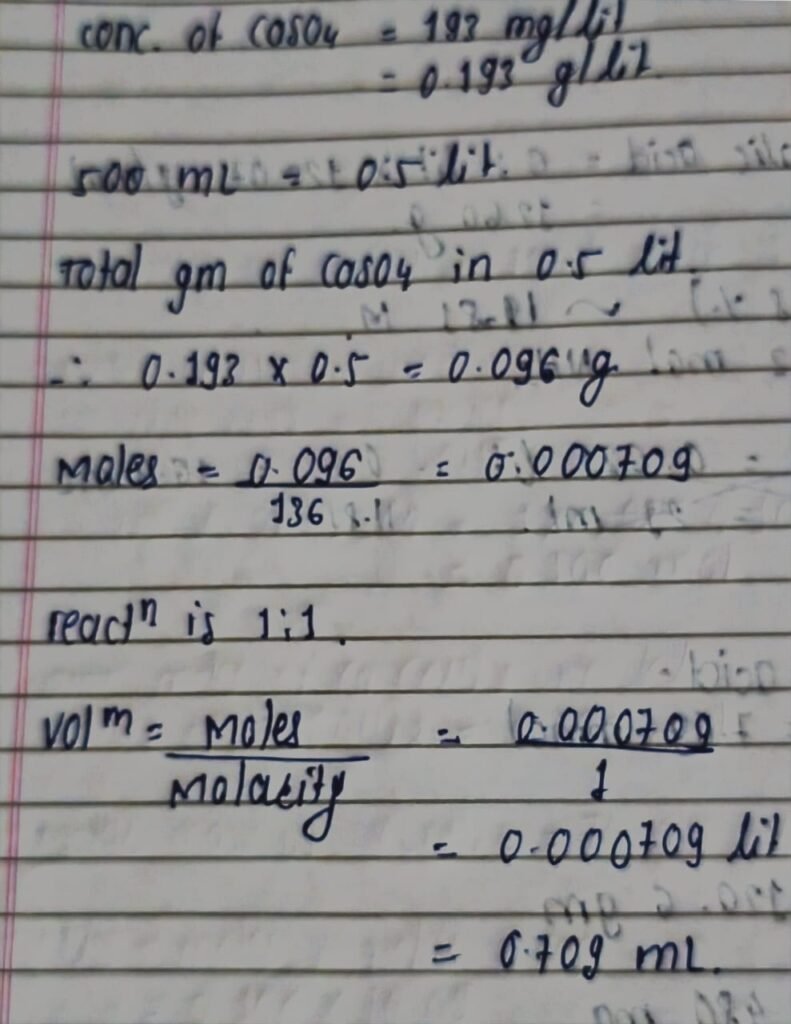 conc. of CaSO4 = 193 mg/lit
= 0.193 g/lit.
500 mL = 0.5 lit.
Total gm of CaSO4 in 0.5 lit.
∴ 0.193 x 0.5 = 0.096 g.
Moles = 0.096 / 136 = 0.000709
reactⁿ is 1:1.
volᵐ = Moles / Molarity = 0.000709 / 1
= 0.000709 lit
= 0.709 mL.